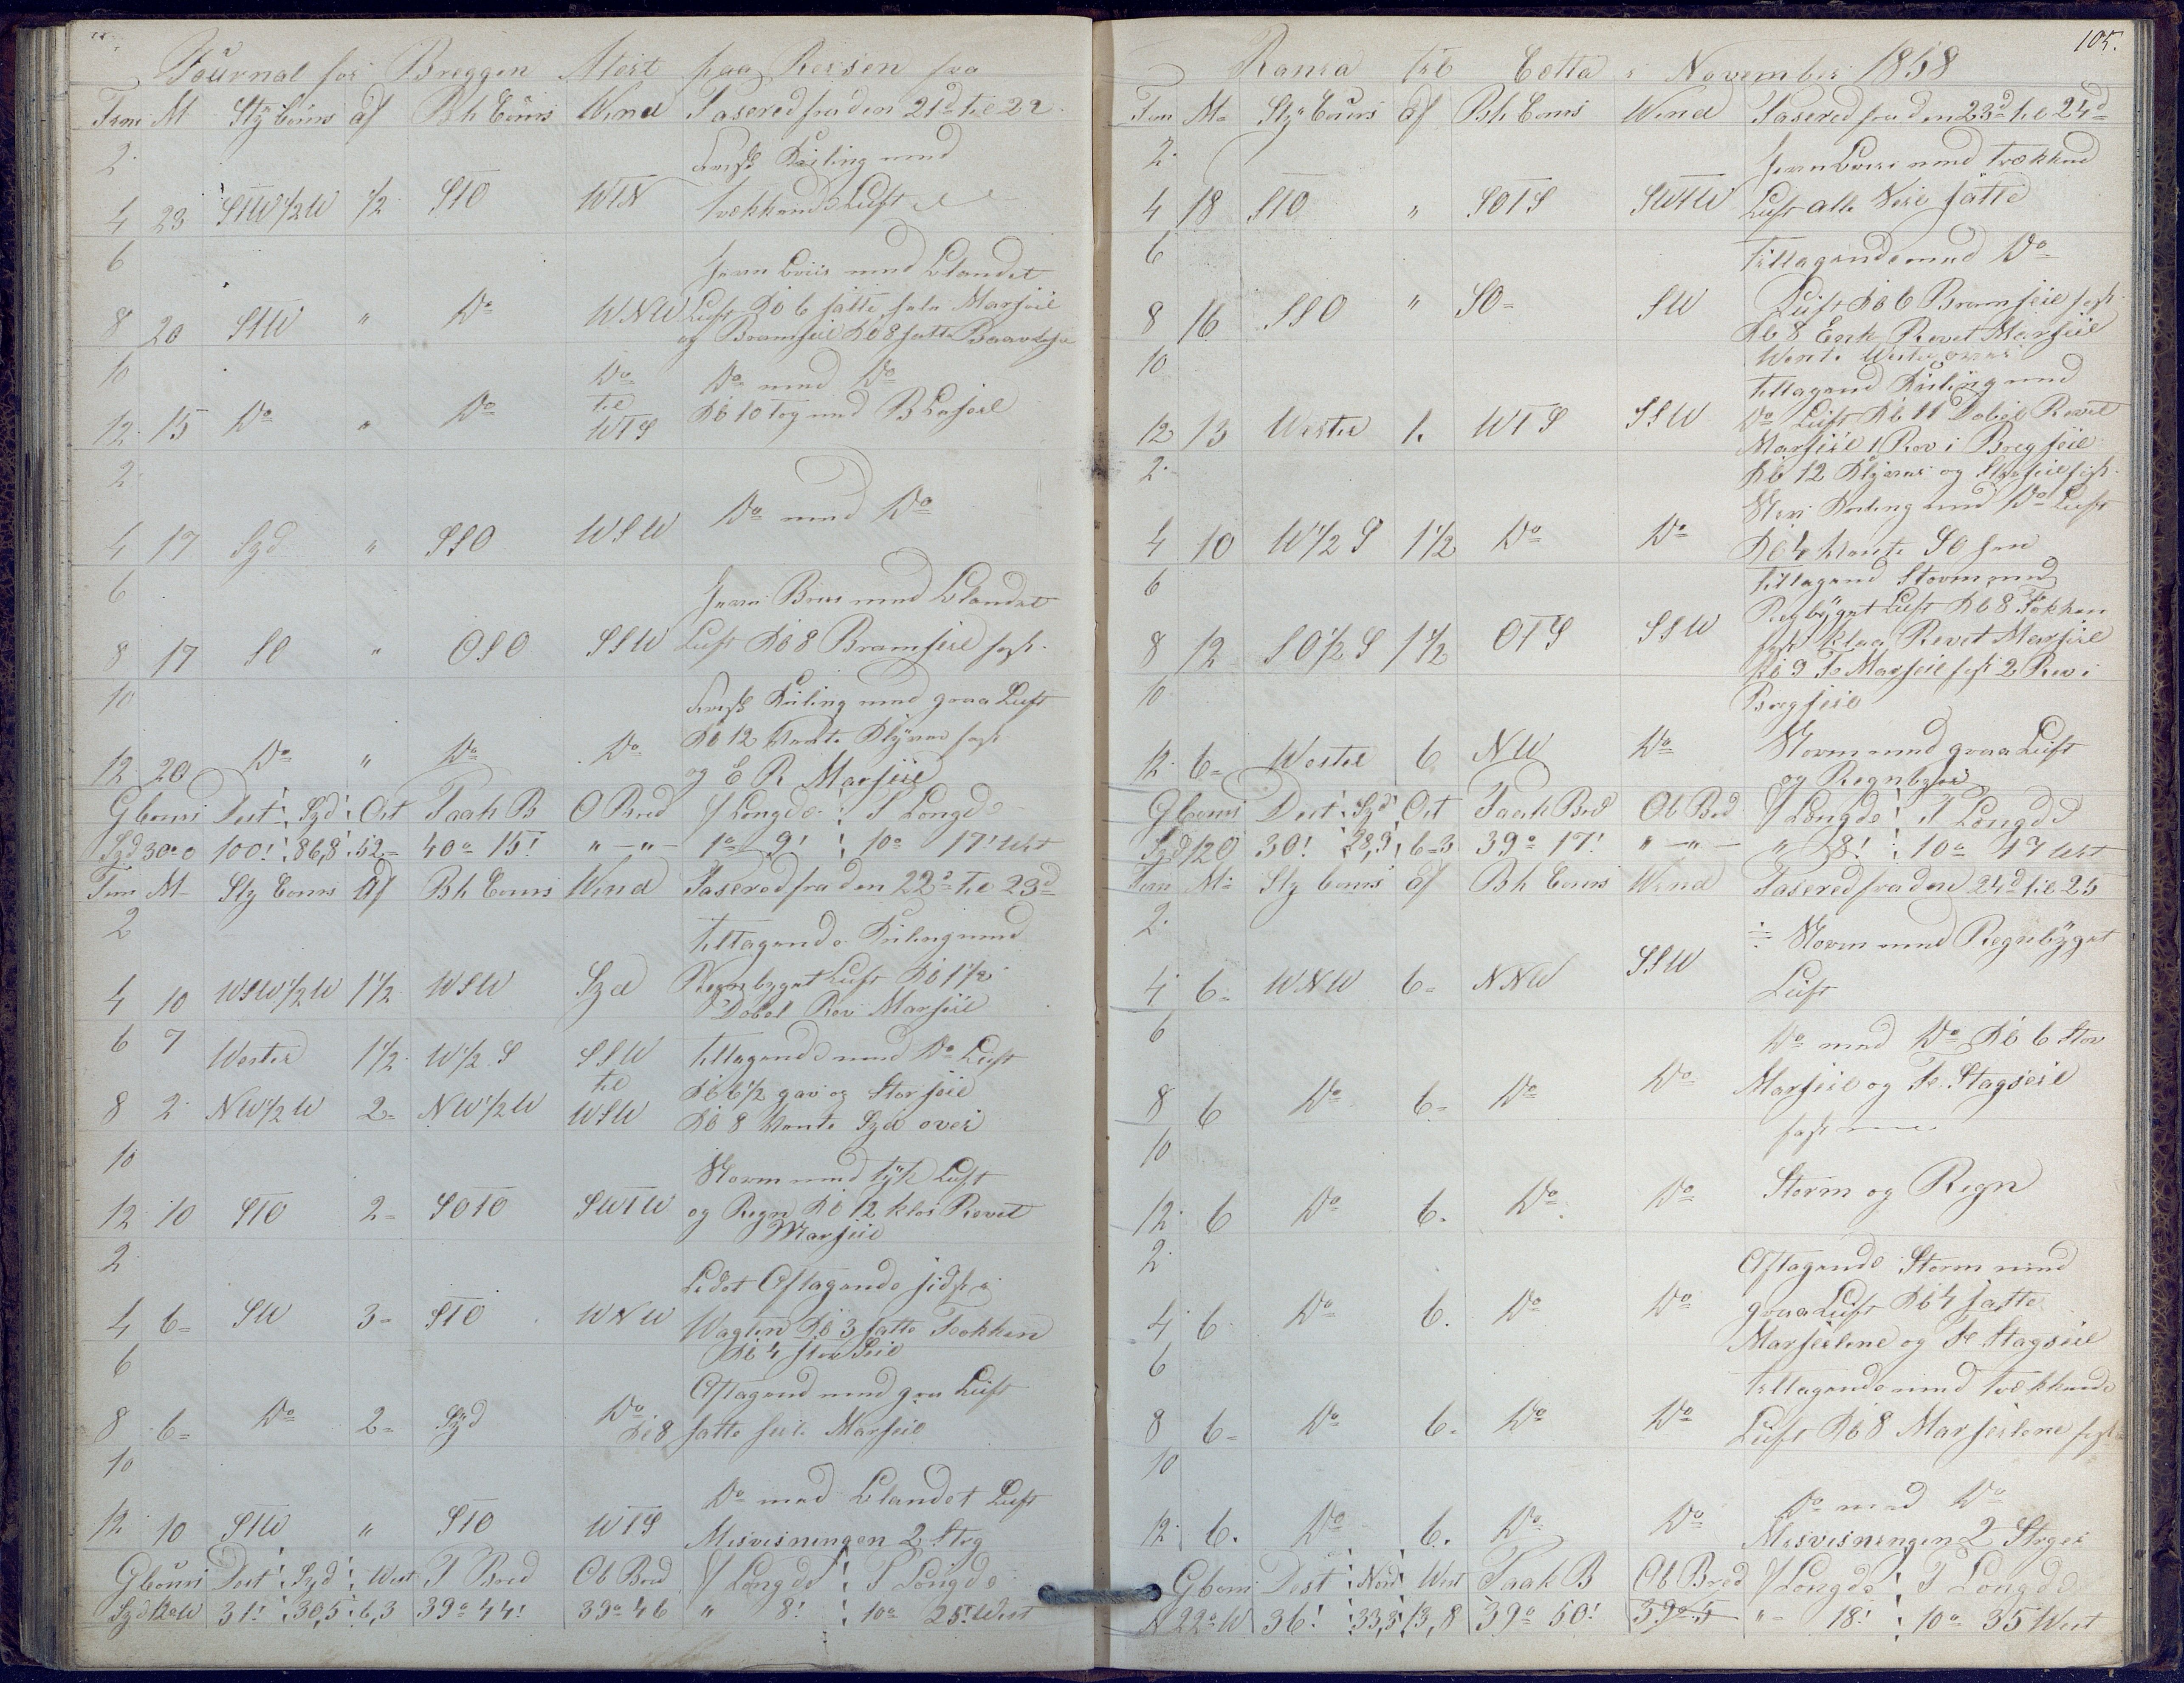 Journal for Breggen Mert paa Reisen fra
Tim M Sty Cours af Bh Cours Wend Pasered fra den 21d til 22
2 Frisk Kuling med
4 23 STW 1/2 W 1/2 STO WTN trækkende Luft
6 Jevn Briis med Blandet
8 20 STW " Do WNW Luft Kl 6 satte Marseil
og Bramseil Kl 8 satte
10 Do Do med Do
12 15 Do " Do til WTS Kl 10 tog ind
2
4 17 Syd " SSO WSW Do med Do
6 Jevn Briis med Blandet
8 17 SO " OSO SSW Luft Kl 8 Bramseil fast
10 Frisk Kuling med graa Luft
12 20 Do " Do Do Kl 12 Klyver fast
og E R Marseil
G Cours Dest Syd Ost Paak B O Bred F Longde P Longde
Syd 30o O 100! 86,8 52 40o 15! " - " - 1o 9! 10o 17! West
Tim M Sty Cours Af Bh Cours Wend Pasered fra den 22d til 23d
2 tiltagende Kuling med
4 10 WSW 1/2 W 1 1/2 WSW Syd Regnbyget Luft Kl 1 1/2
Dobel Rev Marseil
6 7 Wester 1 1/2 W 1/2 S SSW tiltagende med Do Luft
8 2 NW 1/2 W 2 NW 1/2 W til WSW Kl 6 1/2 Storseil
Kl 8 Wente Syd over
10 Storm med tyk Luft
12 10 STO 2 SOTO SWTW og Regn Kl 12 Revet
Marseil
2 Lidet Aftagende sidst i
4 6 SW 3 STO WNW Wagten Kl 3 satte Fokken
Kl 4 stor Seil
6 Aftagend med graa Luft
8 6 Do 2 Syd Do Kl 8 satte Marseil
10 Do med Blandet Luft
12 10 STW " STO WTS Misvisningen 2 Streg
G Cours Dest Syd West P Bred Ob Bred F Longde P Longde
Syd 12o W 31! 30,5 6,3 39o 44! 39o 46 " 8! 10o 25! West
105.
Ransa til Cetta i November 1858
Tim M Sty Cours af Bh Cours Wend Pasered fra den 23d til 24d
2 Jevn Briis med trækkend
4 18 STO " SOTS SWTW Luft alle Seil satte
6 tiltagende med Do
8 16 SSO " SO SW Luft Kl 6 Bramseil fast
Kl 8 Enk Revet Marseil
10 Wente Wester over
tiltagend Kuling med
12 13 Wester 1 WTS SSW Do Luft Kl 11 Dobel Revet
Marseil 1 Rev i Bregseil
2 Kl 12 Klyver og fast
Stiv Kuling med Do Luft
4 10 W 1/2 S 1 1/2 Do Do Kl 4 Wente SO
6 tiltagend Storm med
Regnbyget Luft Kl 8 Fokken
8 12 SO 1/2 S 1 1/2 OTS SSW fast Revet Marseil
Kl 9 Fo Marseil fast 2 Rev i
10 Bregseil
12 6 Wester 6 NW Do Storm med graa Luft
og Regnbyger
G Cours Dest Syd Ost Paak Bred Ob Bred F Longde P Longde
Syd 12 O 30! 28,9 6-3 39o 17! " - " - " 8! 10o 17 West
Tim M Sty Cours af Bh Cours Wend Pasered fra den 24d til 25
2 Storm med Regnbyget
4 6 WNW 6 NNW SSW Luft
6 Do med Do Kl 6 Stor
8 6 Do 6 Do Do Marseil og Fo Stagseil
10 fast
12 6 Do 6 Do Do Storm og Regn
2 Aftagende Storm med
4 6 Do 6 Do Do graa Luft Kl 4 satte
Marseilene og Fo Stagseil
6 tiltagende med trækkende
8 6 Do 6 Do Do Luft Kl 8 Marseilene fast
10 Do med Do
12 6 Do 6 Do Do Misvisningen 2 Streger
G Cours Dest Nord West Paak B Ob Bred F Longde P Longde
N 22o W 36! 33,3 13,8 39o 50! 39o 5 " 18! 10o 35 West